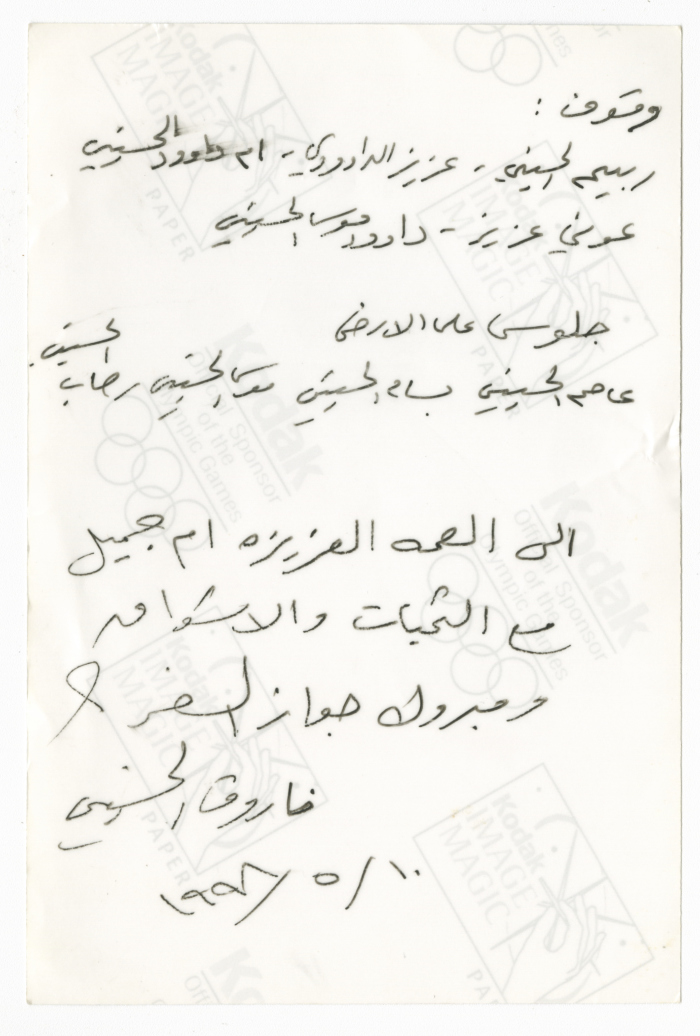 وقوف :
ربيع الحسيني - عزيز الداوودي - ام داوود الحسيني
عوني عزيز - داوود موسى الحسيني
جلوس على الارض
عاصم الحسيني بسام الحسيني موسى الحسيني رحاب الحسيني
الى العمه العزيزه ام جميل
مع التحيات والاشواق
ومبروك جواز السفر
فاروق الحسيني
١٠/٥/١٩٩٨
Kodak
IMAGE
MAGIC
PAPER
Kodak
Official Sponsor
of the
Olympic Games